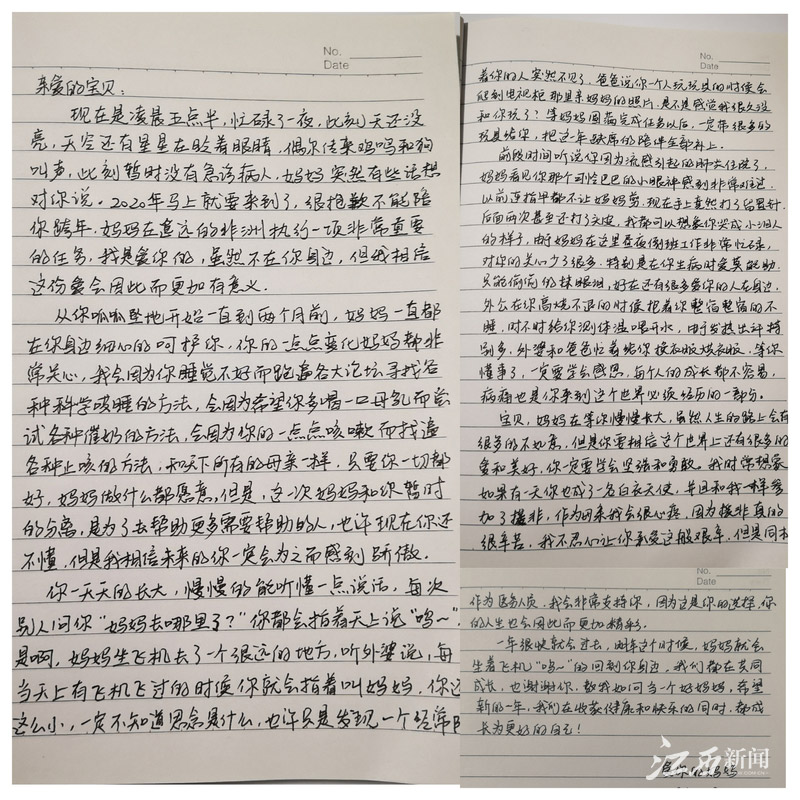 No.
Date
亲爱的宝贝：
现在是凌晨五点半，忙碌了一夜，此刻天还没
亮，天空还有星星在眨着眼睛，偶尔传来鸡鸣和狗
叫声，此刻暂时没有急诊病人，妈妈突然有些话想
对你说。2020年马上就要来到了，很抱歉不能陪
你跨年，妈妈在遥远的非洲执行一项非常重要
的任务，我是爱你的，虽然不在你身边，但我相信
这份爱会因此而更加有意义。
从你呱呱坠地开始一直到两个月前，妈妈一直都
在你身边细心的呵护你，你的一点点变化妈妈都非
常关心，我会因为你睡觉不好而跑遍各大论坛寻找各
种科学哄睡的方法，会因为希望你多喝一口母乳而尝
试各种催奶的方法，会因为你的一点点咳嗽而找遍
各种止咳的方法，和天下所有的母亲一样，只要你一切都
好，妈妈做什么都愿意，但是，这一次妈妈和你暂时
的分离，是为了去帮助更多需要帮助的人，也许现在你还
不懂，但是我相信未来的你一定会为之而感到骄傲。
你一天天的长大，慢慢的能听懂一点说话，每次
别人问你“妈妈去哪里了？”你都会指着天上说“呜～”
是啊，妈妈坐飞机去了一个很远的地方，听外婆说，每
当天上有飞机飞过的时候你就会指着叫妈妈，你还
这么小，一定不知道思念是什么，也许只是发现一个经常陪
着你的人突然不见了，爸爸说你一个人玩玩具的时候会
爬到电视柜那里亲妈妈的照片，是不是感觉我很久没
和你玩了？等妈妈圆满完成任务以后，一定带很多的
玩具给你，把这一年缺席的陪伴全都补上。
前段时间听说你因为流感引起的肺炎住院了，
妈妈看见你那个可怜巴巴的小眼神感到非常难过，
以前连指甲都不让妈妈剪，现在手上竟然打了留置针，
后面两次甚至还打了头皮，我都可以想象你哭成小泪人
的样子，由于妈妈在这里昼夜倒班工作非常忙碌，
对你的关心少了很多，特别是在你生病时爱莫能助，
只能偷偷的抹眼泪，好在还有很多爱你的人在身边，
外公在你高烧不退的时候抱着你整宿整宿的不
睡，时不时给你测体温喂开水，由于发热出汗特
别多，外婆和爸爸忙着给你换衣服烘衣服，等你
懂事了，一定要学会感恩，每个人的成长都不容易，
病痛也是你来到这个世界必须经历的一部分。
宝贝，妈妈在等你慢慢长大，虽然人生的路上会有
很多的不如意，但是你要相信这个世界上还有很多的
爱和美好，你一定要学会坚强和勇敢。我时常想象
如果有一天你也成了一名白衣天使，并且和我一样参
加了援非，作为母亲我会很心疼，因为援非真的
很辛苦，我不忍心让你承受这般艰辛，但是同样
No.
Date
作为医务人员，我会非常支持你，因为这是你的选择，你
的人生也会因此而更加精彩。
一年很快就会过去，明年这个时候，妈妈就会
坐着飞机“呜～”的回到你身边，我们都在共同
成长，也谢谢你，教我如何当一个好妈妈，希望
新的一年，我们在收获健康和快乐的同时，都成
长为更好的自己！
爱你的妈妈
江西新闻